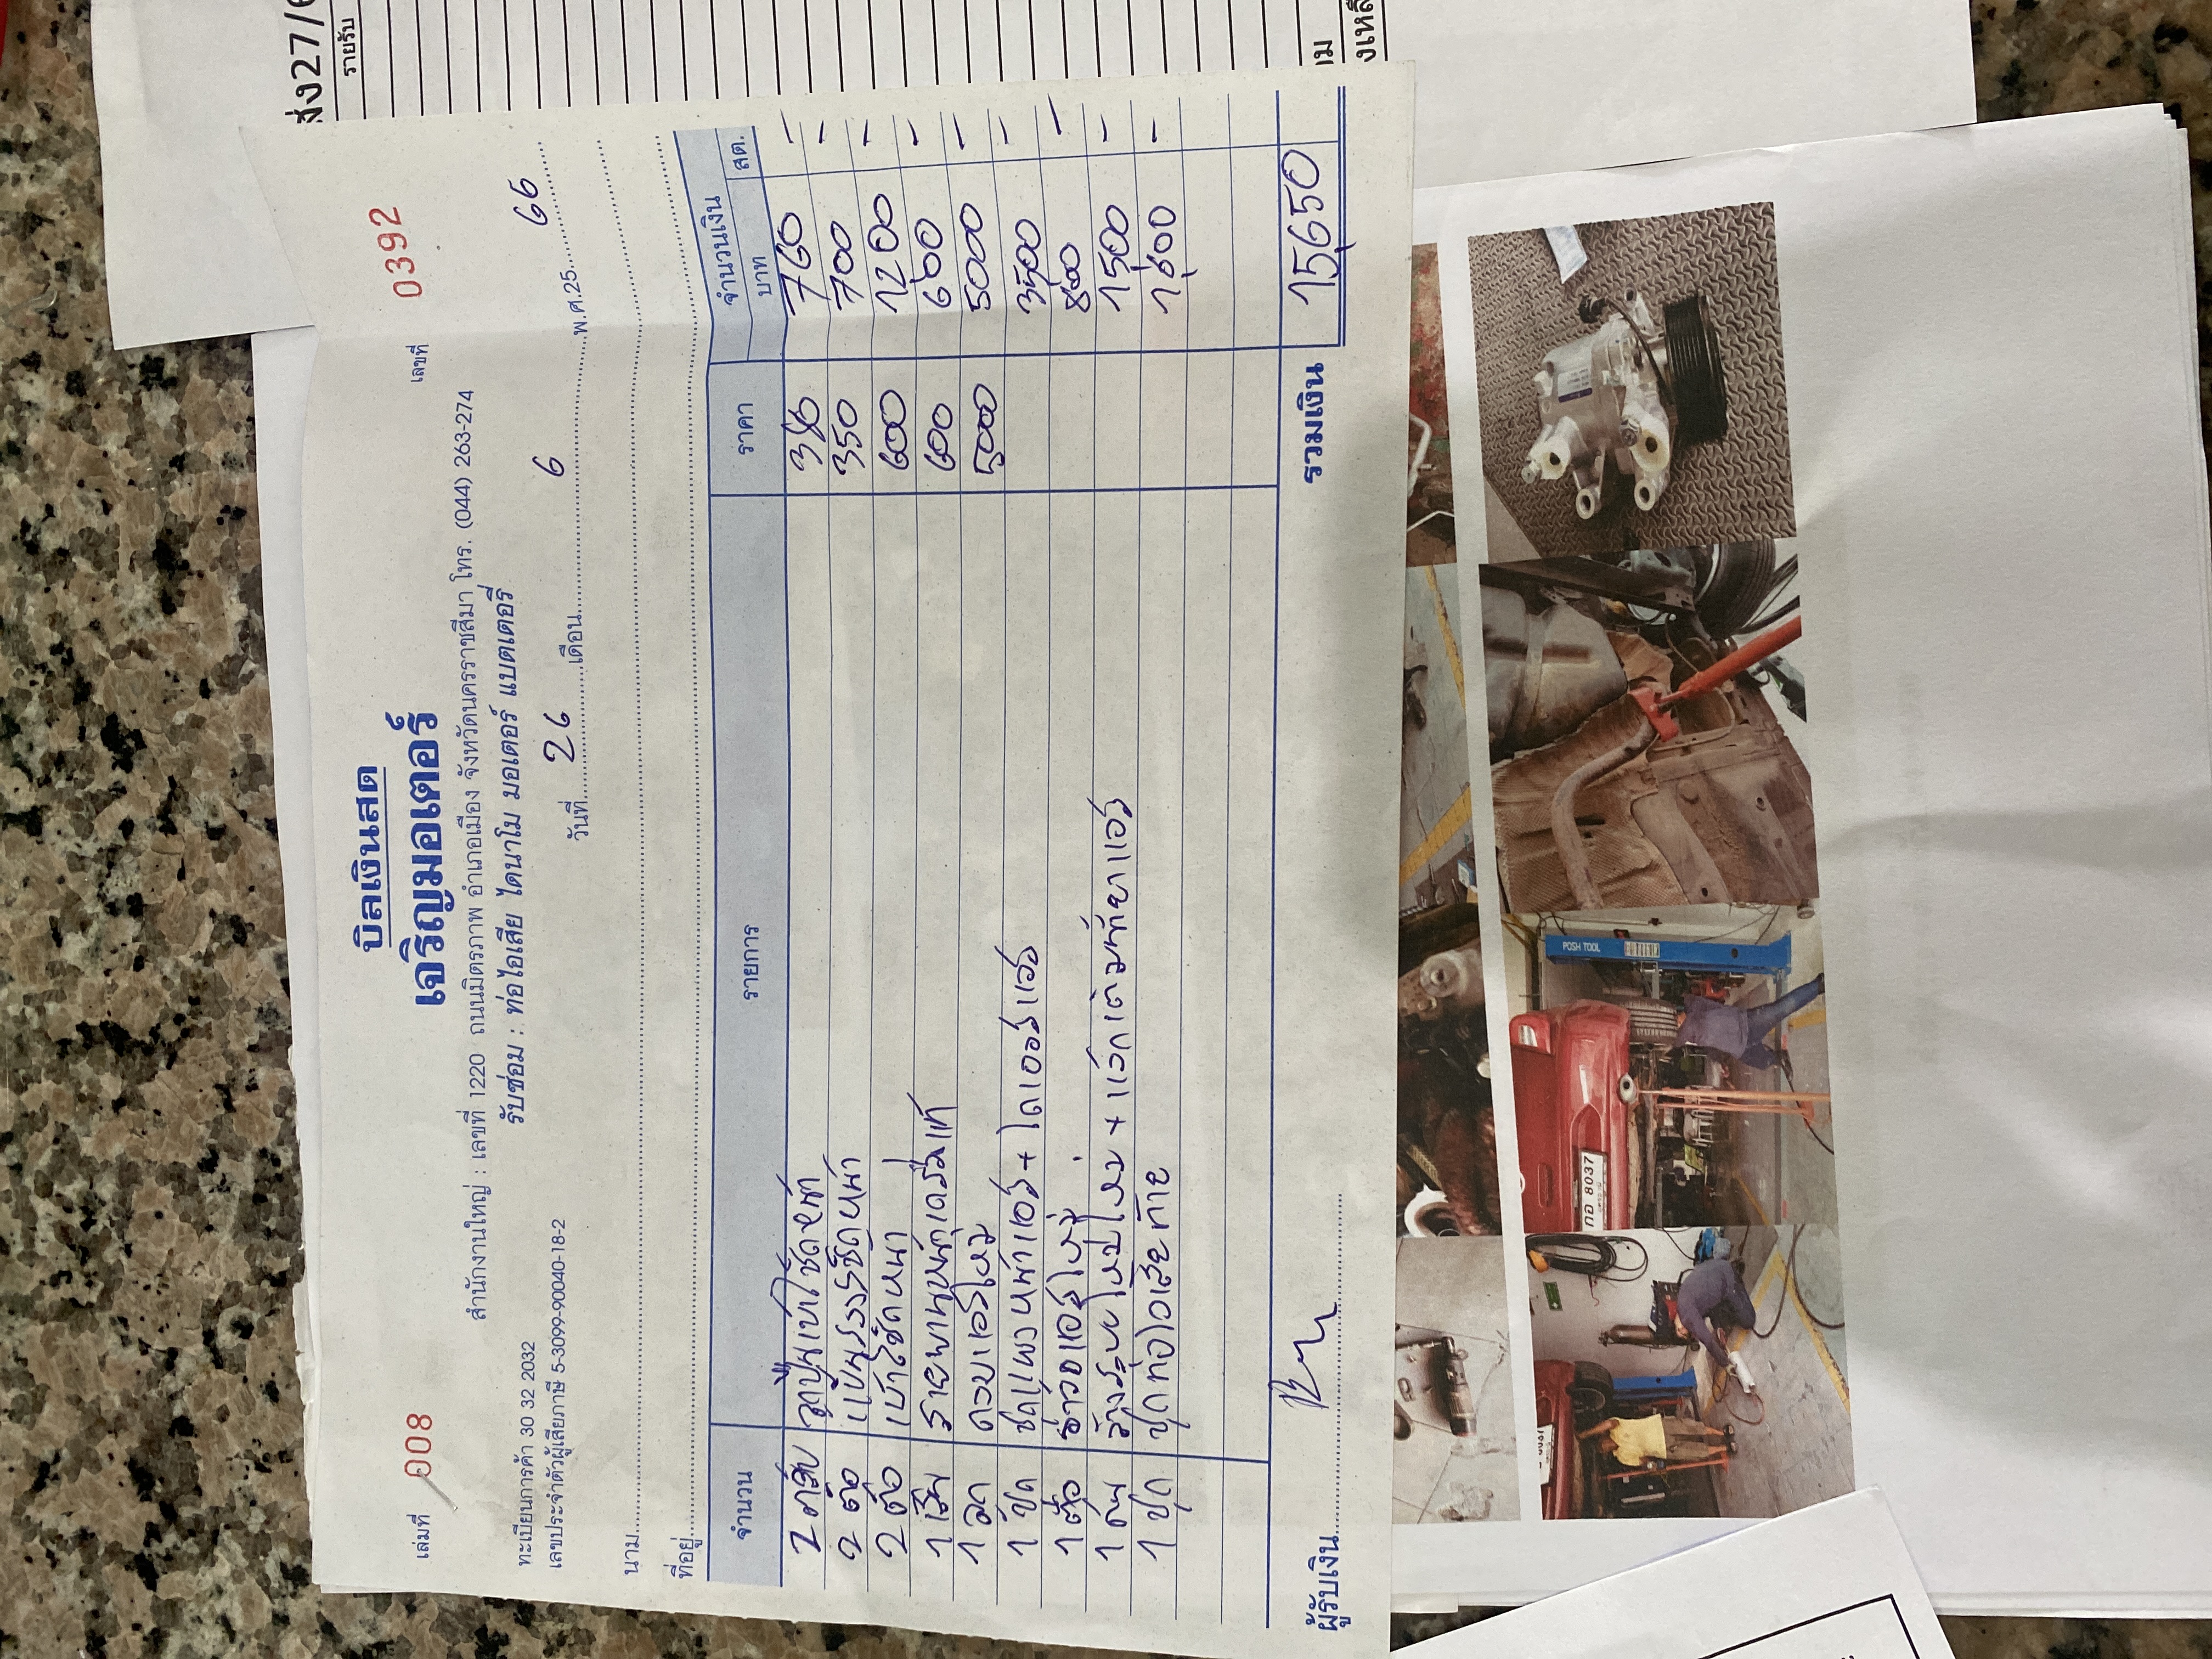 ส่ง27/6
รายรับ
บิลเงินสด
เล่มที่ 008
เจริญมอเตอร์
เลขที่ 0392
สำนักงานใหญ่ : เลขที่ 1220 ถนนมิตรภาพ อำเภอเมือง จังหวัดนครราชสีมา โทร. (044) 263-274
ทะเบียนการค้า 30 32 2032
รับซ่อม : ท่อไอเสีย ไดนาโม มอเตอร์ แบตเตอรี่
เลขประจำตัวผู้เสียภาษี 5-3099-90040-18-2
วันที่ 26 เดือน 6 พ.ศ.25 66
นาม
ที่อยู่
จำนวน รายการ ราคา จำนวนเงิน
บาท สต.
2 ลูกปืนเบ้าโช้คหน้า 380 760 -
2 ตัว โช้คหน้า 350 700 -
2 ตัว เบ้าโช้คหน้า 600 1200 -
1 เส้น สายพานหน้าเครื่องแท้ 600 600 -
1 ลูก คอมแอร์ใหม่ 5000 5000 -
1 ชุด แผงหน้าแอร์ + ไดเออร์แอร์ 3500 -
1 ตัว วาวแอร์ใหม่ 800 -
1 ล้างระบบใหม่ + แว็กเติมน้ำยาแอร์ 1500 -
1 ชุด ชุดท่อไอเสียท้าย 1600 -
ผู้รับเงิน
รวมเงิน 15,650
POSH TOOL
กอ 8037